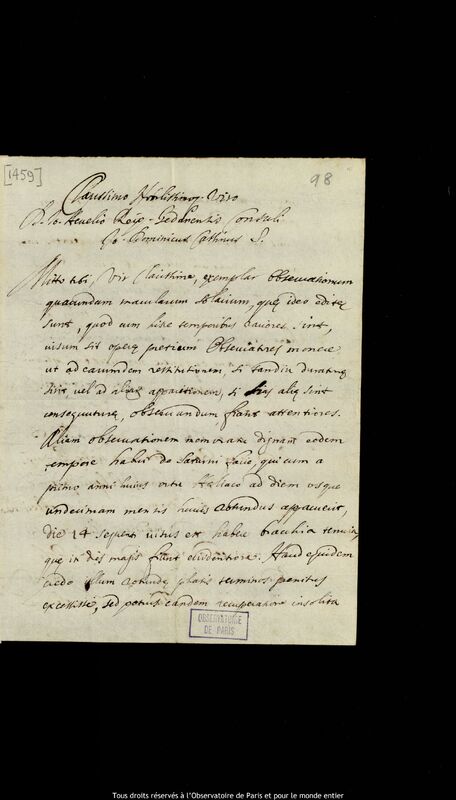 [1459]
98
Clarissimo Nobilissimoq. Viro
D. Jo. Hevelio Reip. Gedanensis Consuli
Jo. Dominicus Cassinus S.
Mitto tibi, Vir Clarissime, exemplar Observationum
quarundam macularum solarium, quę ideo editę
sunt, quod cum hisce temporibus rariores sint,
visum sit operę pretium Observatores monere
ut ad earumdem restitutionem, si tandiu duratura
sint, vel ad alias apparitionem, si his alię sint
consequuturę, observandum fiant attentiores.
Aliam observationem memoratu dignam eodem
tempore habui de Saturni facie, qui cum a
primo anni huius ortu Heliaco ad diem usque
undecimam mensis huius rotundus apparuerit,
die 14 sequenti visus est habere brachia tenuia,
quę in dies magis fiunt evidentiora. Haud equidem
credo illum rotundę phasis terminos penitus
excessisse, sed potius eandem recuperaturum insolita
OBSERVATOIRE
DE PARIS
Tous droits réservés à l'Observatoire de Paris et pour le monde entier